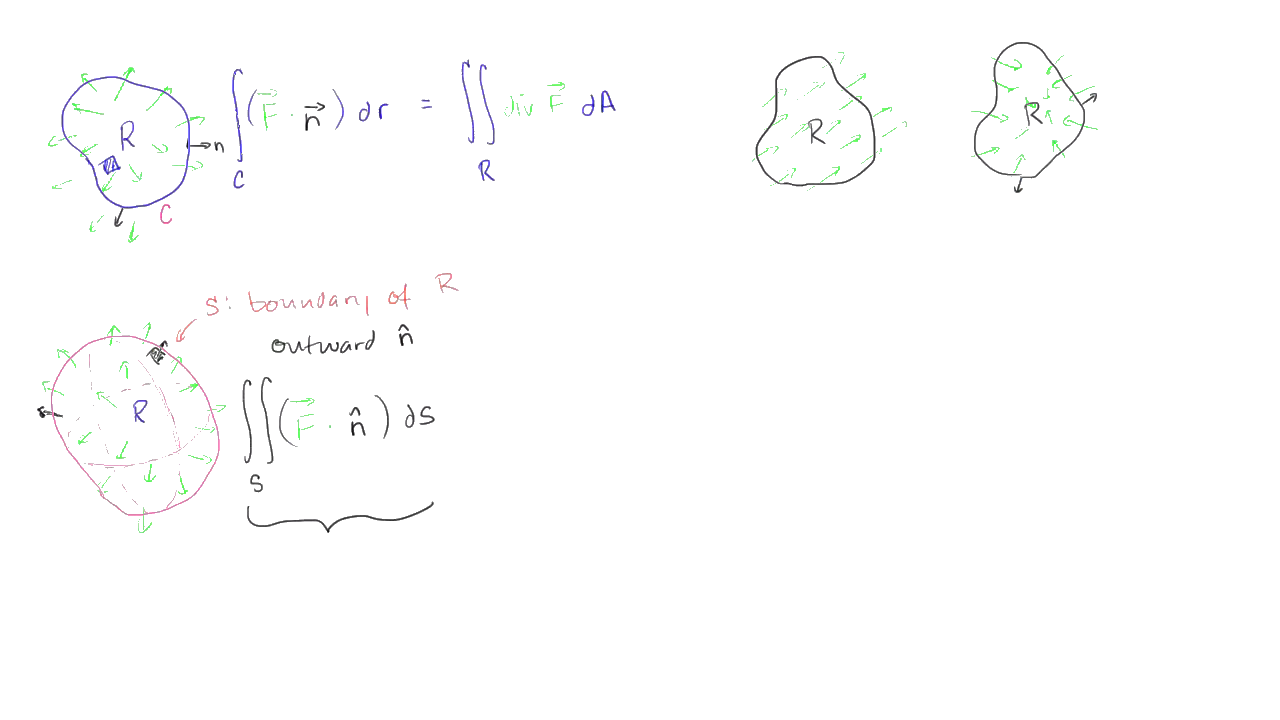 R
n
C
∫_C (F⃗ · n⃗) dr = ∬_R div F⃗ dA
R
R
S: boundary of R
outward n̂
R
∬_S (F⃗ · n̂) dS